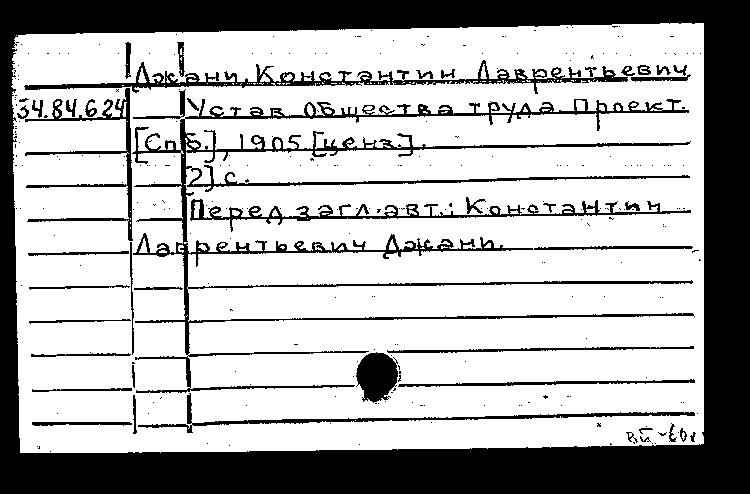 Джани, Константин Лаврентьевич
34.84.624 Устав Общества труда. Проект.
[Спб.], 1905 [ценз.].
[2] с.
Перед загл. авт.: Константин
Лаврентьевич Джани.